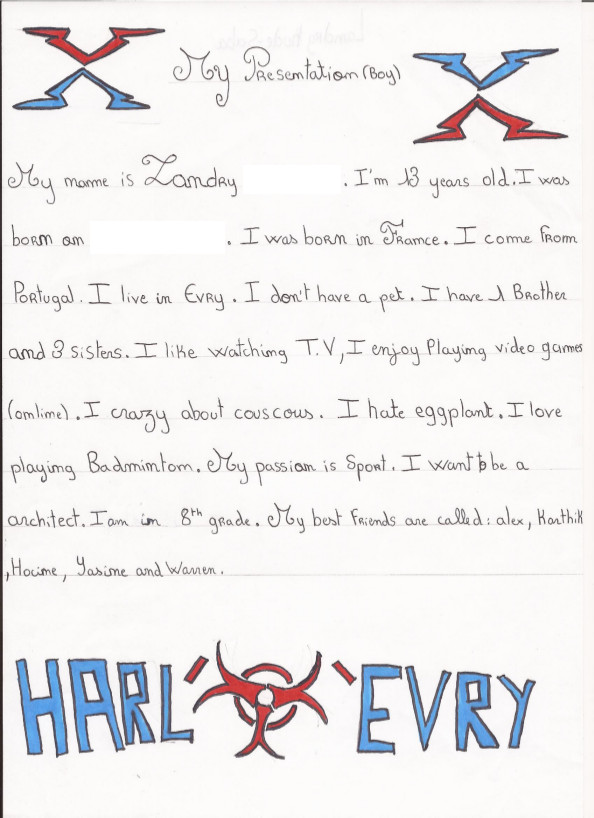 My Presentation (Boy)
My name is Landry . I'm 13 years old. I was
born on . I was born in France. I come from
Portugal. I live in Evry. I don't have a pet. I have 1 Brother
and 3 sisters. I like watching T.V, I enjoy Playing video games
(online). I crazy about couscous. I hate eggplant. I love
playing Badminton. My passion is Sport. I want to be a
architect. I am in 8th grade. My best Friends are called: alex, Karthik
, Hocine, Yasine and Warren.
HARL'O'EVRY